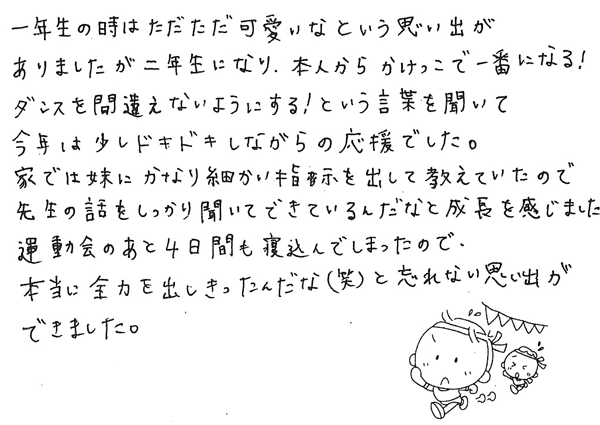 一年生の時はただただ可愛いなという思い出が
ありましたが二年生になり、本人からかけっこで一番になる!
ダンスを間違えないようにする!という言葉を聞いて
今年は少しドキドキしながらの応援でした。
家では妹にかなり細かい指示を出して教えていたので
先生の話をしっかり聞いてできているんだなと成長を感じました
運動会のあと4日間も寝込んでしまったので、
本当に全力を出しきったんだな(笑)と忘れない思い出が
できました。